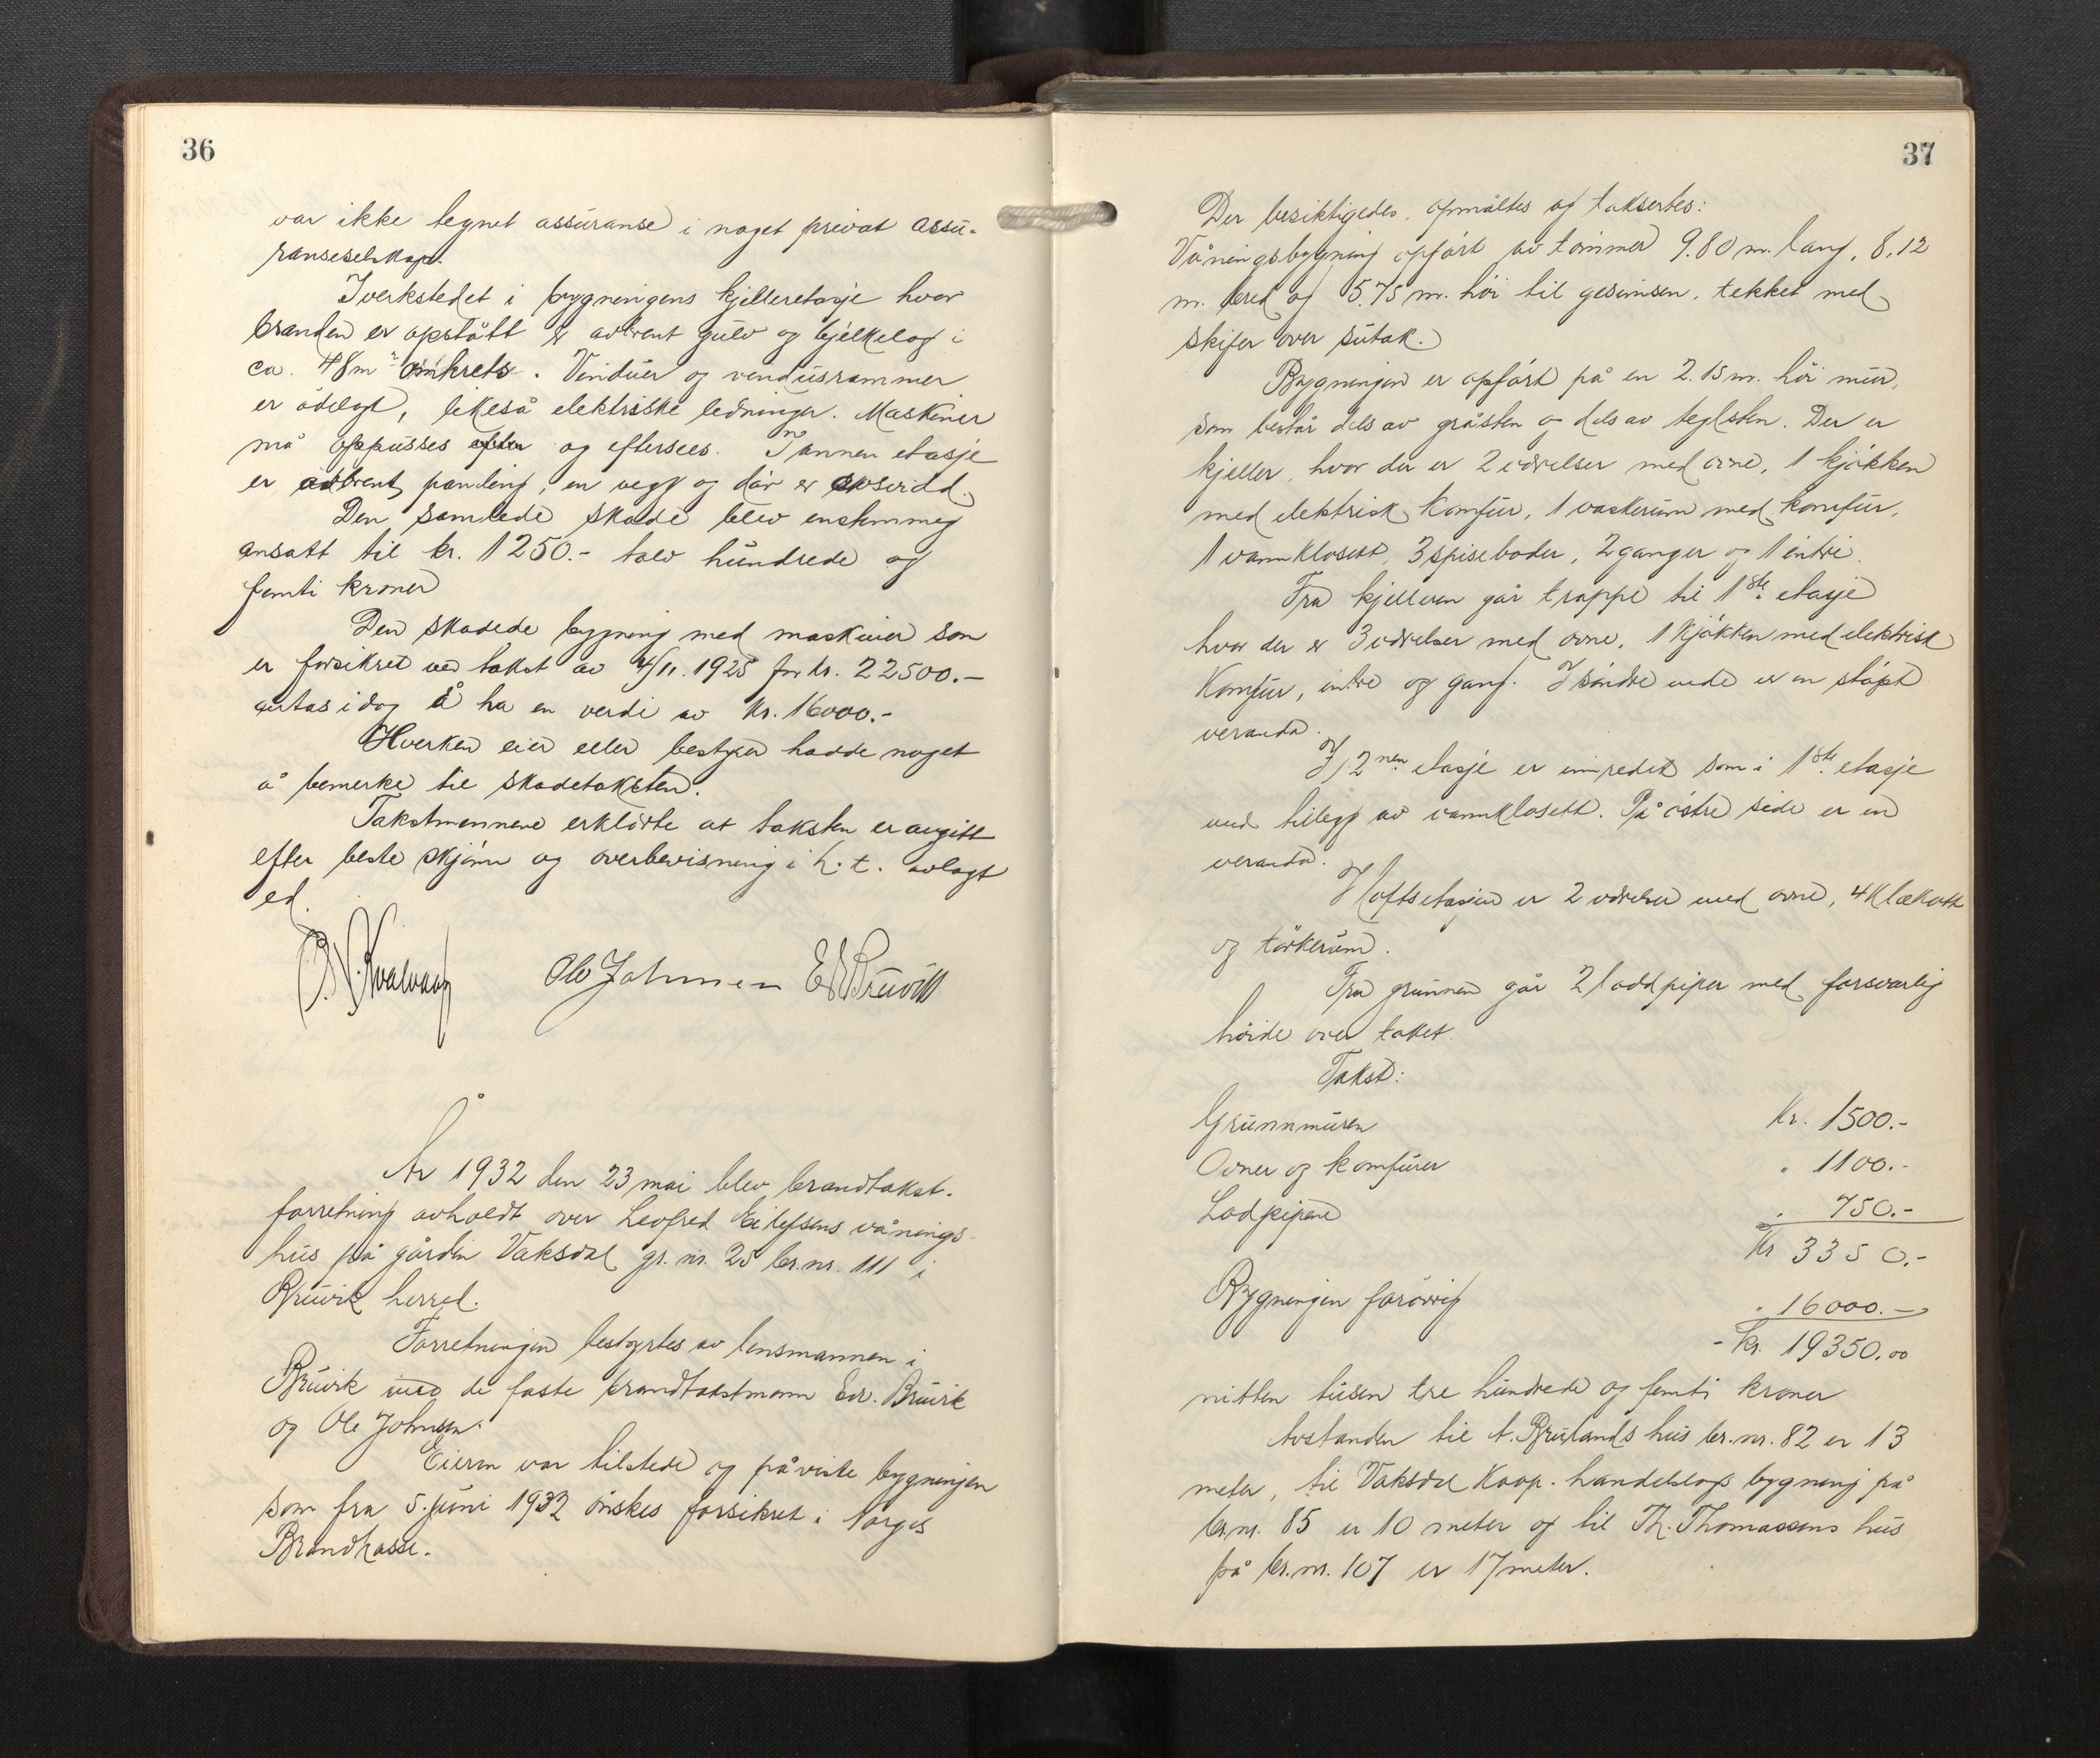 36
var ikke tegnet assuranse i noget privat assu-
ranseselskap.
I verkstedet i bygningens kjelleretasje hvor
branden er opstått er avbrent gulv og bjelkelag i
ca. 48 m² omkrets. Vinduer og vindusrammer
er ödelagt, likeså elektriske ledninger. Maskiner
må oppusses og eftersees. I annen etasje
er avbrent panling, en vegg og dör er
Den samlede skade blev enstemmig
ansatt til kr. 1250.- tolv hundrede og
femti kroner
Den skadede bygning med maskiner som
er forsikret ved takst av 4/11. 1925 for kr. 22500.-
antas idag å ha en verdi av kr. 16000.-
Hverken eier eller bestyrer hadde noget
å bemerke til skadetaksten.
Takstmennene erklærte at taksten er avgitt
efter beste skjönn og overbevisning i h. t. avlagt
ed.
Ole Johnsen E Bruvik
År 1932 den 23 mai blev brandtakst-
forretning avholdt over Leofred Eilefsens vånings-
hus på gården Vaksdal gr. nr. 25 br. nr. 111 i
Bruvik herred.
Forretningen bestyrtes av lensmannen i
Bruvik med de faste brandtakstmenn Edv. Bruvik
og Ole Johnsen.
Eieren var tilstede og påviste bygningen
som fra 5. juni 1932 önskes forsikret i Norges
Brandkasse.
37
Der besiktigedes, opmåltes og taksertes:
Våningsbygning opfört av tömmer 9.80 m. lang, 8.12
m. bred og 5.75 m. höi til gesimsen, tekket med
skifer over sutak.
Bygningen er opfört på en 2.15 m. höi mur,
som består dels av gråsten og dels av teglsten. Der er
kjeller, hvor der er 2 værelser med ovne, 1 kjökken
med elektrisk komfur, 1 vaskerum med komfur,
1 vannklosett, 3 spiseboder, 2 ganger og 1 entre.
Fra kjelleren går trappe til 1ste etasje
hvor der er 3 værelser med ovne, 1 kjökken med elektrisk
komfur, entre og gang. I söndre ende er en stöpt
veranda.
I 2nen etasje er innredet som i 1ste etasje
med tillegg av vannklosett. På östre side er en
veranda.
I loftsetasjen er 2 værelser med ovne, 4 klækott
og törkerum.
Fra grunnen går 2 loddpiper med forsvarlig
höide over taket.
Takst:
Grunnmuren Kr. 1500.-
Ovner og komfurer " 1100.-
Lodpipene " 750.-
Kr 3350.-
Bygningen forövrig " 16000.-
- Kr. 19350.00
nitten tusen tre hundrede og femti kroner
Avstanden til A. Bruland's hus br. nr. 82 er 13
meter, til Vaksdal Koop. handelslags bygning på
br. nr. 85 er 10 meter og til Th. Thomassens hus
på br. nr. 107 er 17 meter.